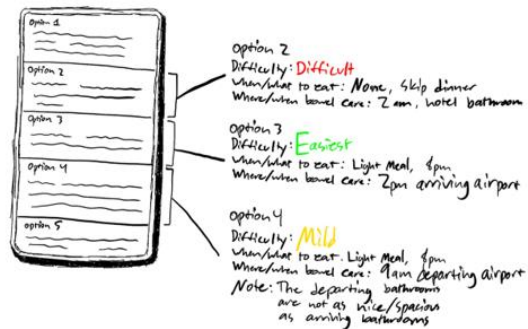 Option 1
Option 2
Option 3
Option 4
Option 5
Option 2
Difficulty: Difficult
When/what to eat: None, skip dinner
Where/when bowel care: 2 am, hotel bathroom
Option 3
Difficulty: Easiest
When/what to eat: Light Meal, 8pm
Where/when bowel care: 2pm arriving airport
Option 4
Difficulty: Mild
When/what to eat: Light Meal, 8pm
Where/when bowel care: 9am departing airport
Note: The departing bathrooms
are not as nice/spacious
as arriving bathrooms